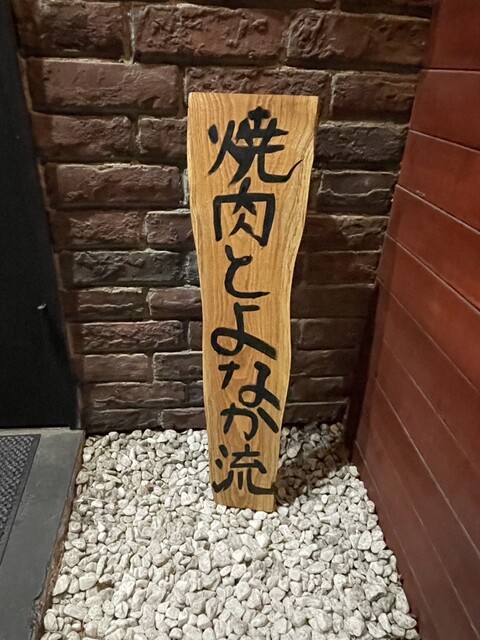 焼肉とよなか流